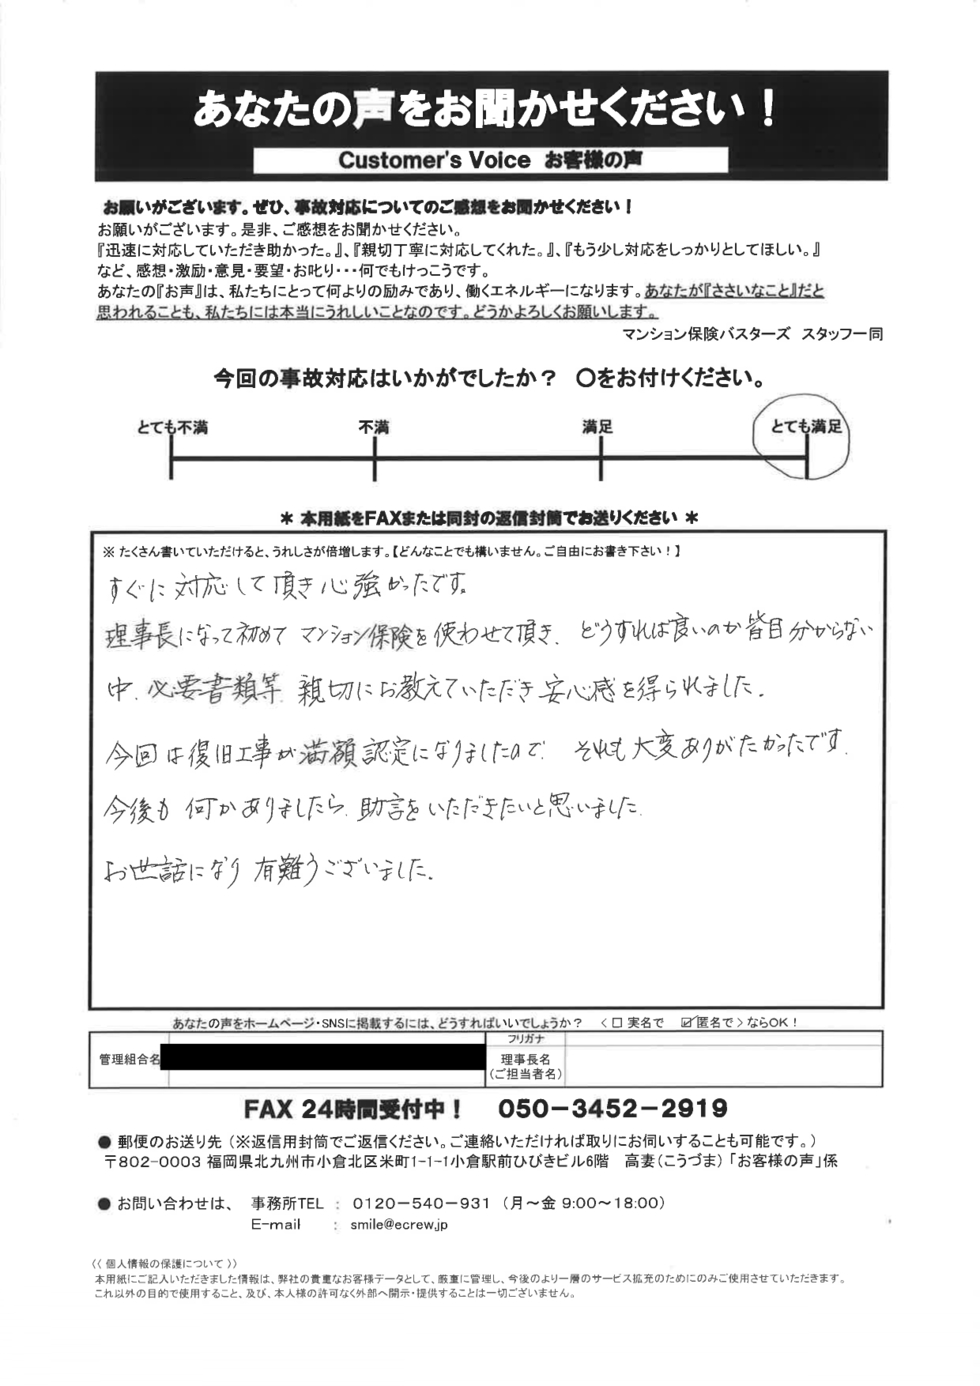 あなたの声をお聞かせください！
Customer's Voice お客様の声
お願いがございます。ぜひ、事故対応についてのご感想をお聞かせください！
お願いがございます。是非、ご感想をお聞かせください。
『迅速に対応していただき助かった。』、『親切丁寧に対応してくれた。』、『もう少し対応をしっかりとしてほしい。』
など、感想・激励・意見・要望・お叱り・・・何でもけっこうです。
あなたの『お声』は、私たちにとって何よりの励みであり、働くエネルギーになります。あなたが『ささいなこと』だと
思われることも、私たちには本当にうれしいことなのです。どうかよろしくお願いします。
マンション保険バスターズ スタッフ一同
今回の事故対応はいかがでしたか？ 〇をお付けください。
とても不満 不満 満足 とても満足
＊ 本用紙をFAXまたは同封の返信封筒でお送りください ＊
※ たくさん書いていただけると、うれしさが倍増します。【どんなことでも構いません。ご自由にお書き下さい！】
すぐに対応して頂き心強かったです。
理事長になって初めてマンション保険を使わせて頂き、どうすれば良いのか皆目分からない
中、必要書類等、親切にお教えていただき安心感を得られました。
今回は復旧工事が満額認定になりましたので、それも大変ありがたかったです。
今後も何かありましたら、助言をいただきたいと思いました。
お世話になり有難うございました。
あなたの声をホームページ・SNSに掲載するには、どうすればいいでしょうか？ ＜ □ 実名で ☑匿名で＞ならOK！
管理組合名
フリガナ
理事長名
（ご担当者名）
FAX 24時間受付中！ 050－3452－2919
● 郵便のお送り先（※返信用封筒でご返信ください。ご連絡いただければ取りにお伺いすることも可能です。）
〒802-0003 福岡県北九州市小倉北区米町1-1-1小倉駅前ひびきビル6階 高妻（こうづま）「お客様の声」係
● お問い合わせは、 事務所TEL ： 0120－540－931 （月～金 9：00～18：00）
E-mail ： smile@ecrew.jp
《 個人情報の保護について 》
本用紙にご記入いただきました情報は、弊社の貴重なお客様データとして、厳重に管理し、今後のより一層のサービス拡充のためにのみご使用させていただきます。
これ以外の目的で使用すること、及び、本人様の許可なく外部へ開示・提供することは一切ございません。